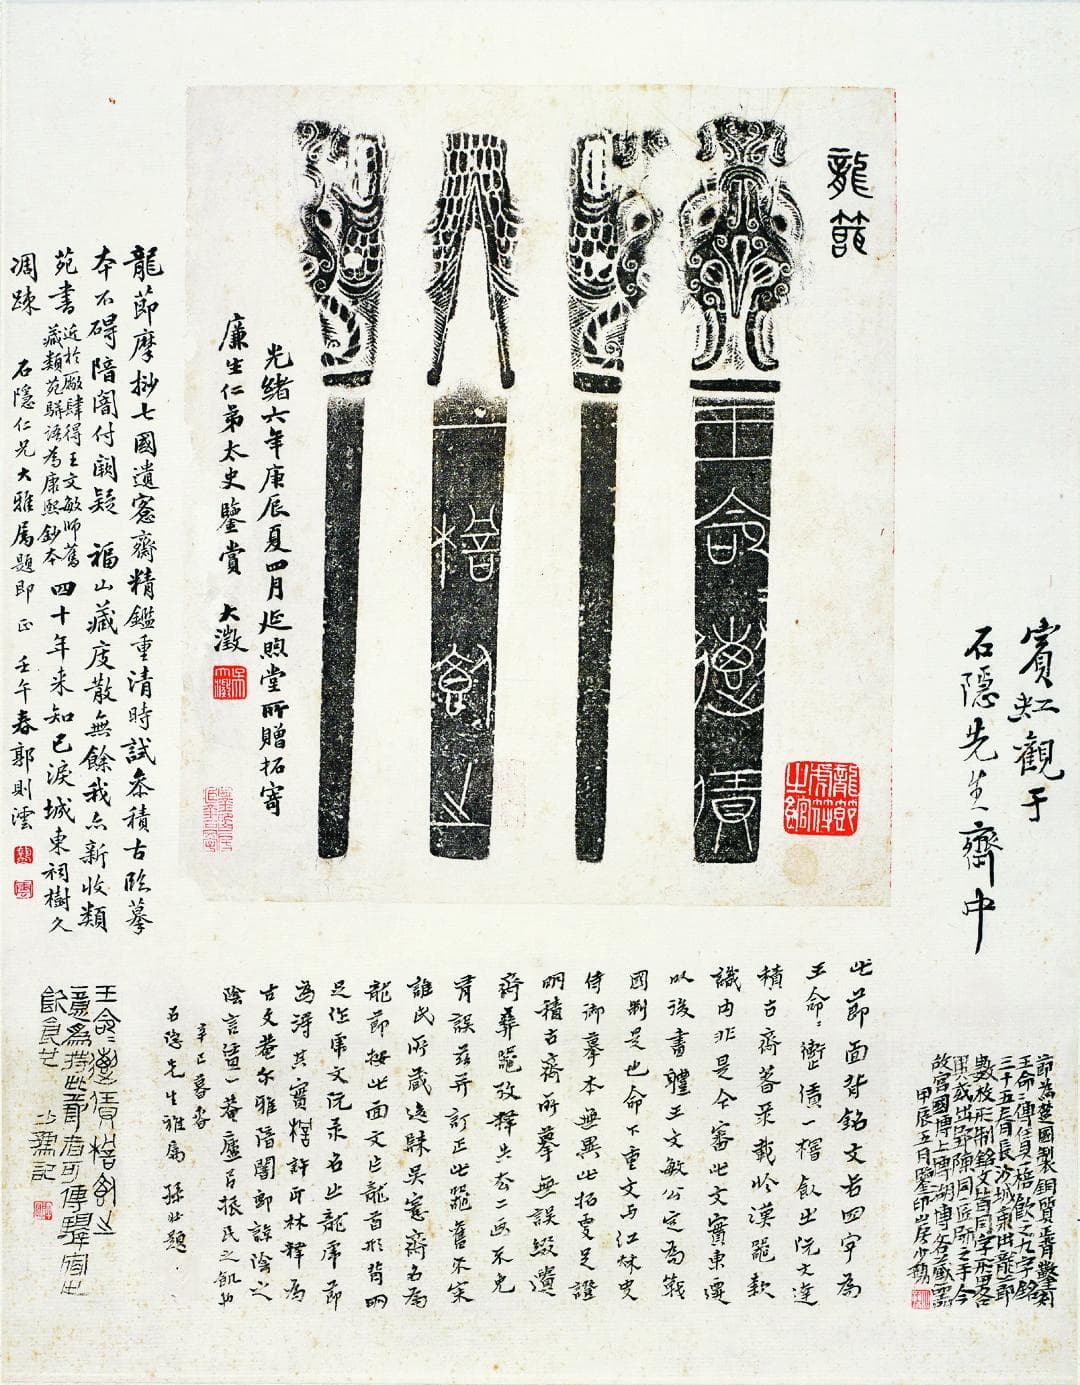 龍節
王命傳賃
棓飤之
光緒六年庚辰夏四月延煦堂所贈拓寄
廉生仁弟太史鑒賞 大澂
龍節虎符之館
賓虹觀于
石隱先生齋中
龍節摩挲七國遺愙齋精鑑重清時試參積古臨摹
本不碍陪闇付闕疑 福山藏庋散無餘我亦新收類
苑書 近於廠肆得王文敏師舊藏類苑駢語為康熙鈔本 四十年來知己淚城東祠樹久
凋踈 石隱仁兄大雅属題即正 壬午春郭則澐
此節面背銘文各四字為
王命=衝賃一楷飤之阮文達
積古齋箸录載於漢器款
識内非是今審此文實東遷
以後書體王文敏公定為戰
國制是也命下重文与江秋史
侍御摹本無異此拓更足證
明積古齋所摹無誤綴遺
齋彝器攷釋共存二画不免
有誤茲并訂正此器舊不審
誰氏所藏後歸吳愙齋名為
龍節按此面文作龍首形背明
是作虎文阮录名之龍虎節
為得其實楷許印林釋為
古文菴尔雅陪闇郭註陰之
陰言道一菴廬吕振民之飢也
辛巳暮春
石隱先生雅属 孫壯題
節為楚國製銅質正背鑿刻
王命=傳賃一棓飤之九字銘
三十五年省長沙城東出龍節
數枚形制銘文皆同字亦略
同工匠所之手今
故宮國博上博湖博各藏一器
甲辰五月鑒印山房少
王命=傳賃棓飤之
意為持此節者可傳驛宿止
飲食也 記